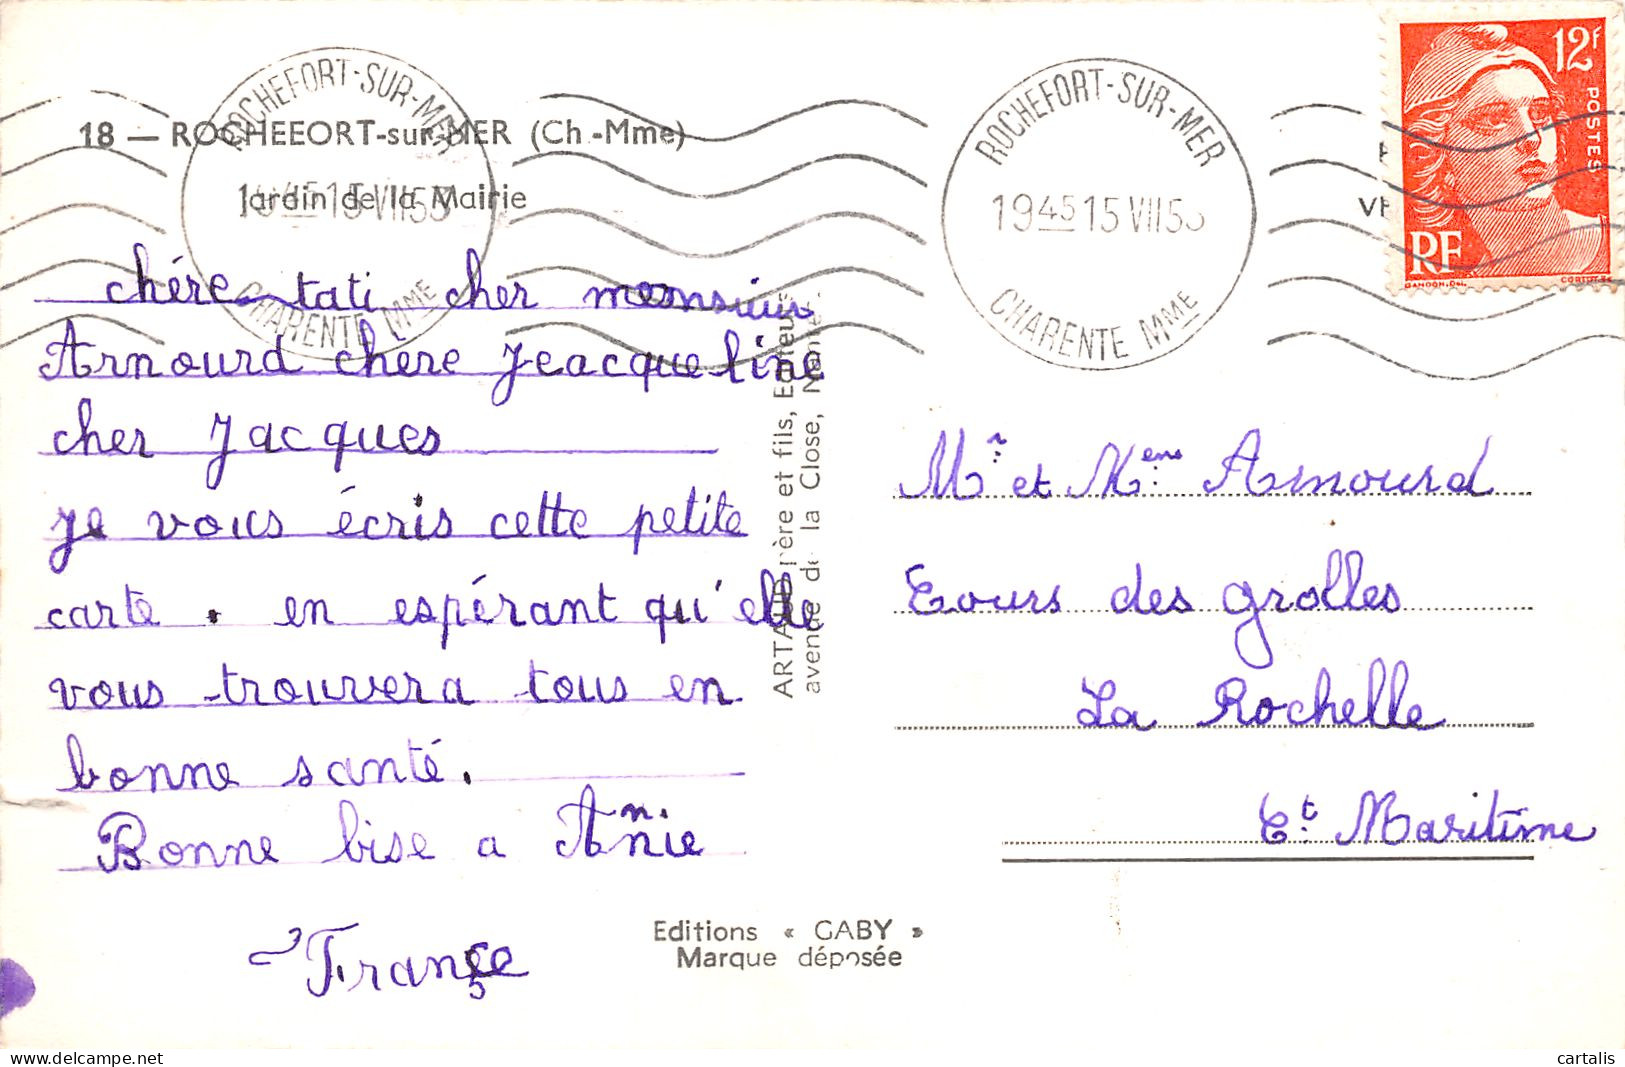 18 — ROCHEEORT-sur-MER (Ch.-Mme)
Jardin de la Mairie
ROCHEFORT-SUR-MER
15 VII 53
CHARENTE MME
ROCHEFORT-SUR-MER
19 45 15 VII 53
CHARENTE MME
12F
POSTES
RF
GANDON, Del.
chére tati cher monsieur
Arnourd chère Jeacqueline
cher Jacques
je vous écris cette petite
carte. en espérant qu'elle
vous trouvera tous en
bonne santé.
Bonne bise a Annie
France
ARTAUD père et fils, Editeurs
avenue de la Close, Nantes
Mr. et Mme. Arnourd
Cours des grolles
La Rochelle
Ct. Maritime
Editions « GABY »
Marque déposée
cartalis